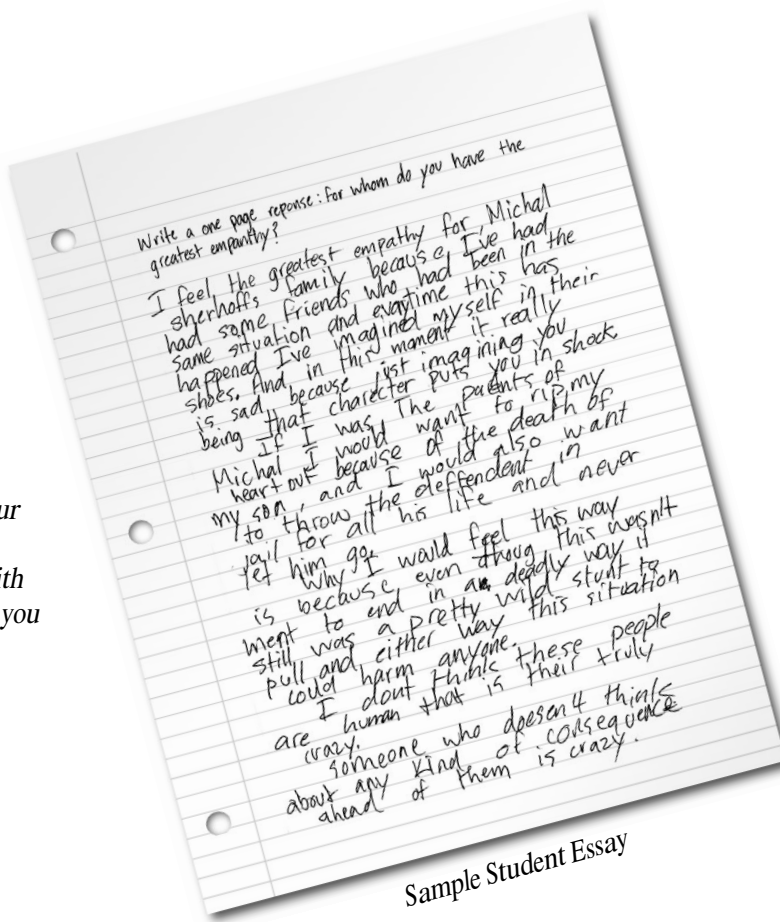 Write a one page reponse: for whom do you have the
greatest empanthy?
I feel the greatest empathy for Michal
sherhoffs family because I've had
had some friends who had been in the
same situation and evaytime this has
happened I've imagined myself in their
shoes. And, in this moment it really
is sad because just imagining you
being that charecter puts you in shock
If I was The parents of
Michal I woud want to rip my
heart out because of the death of
my son, and I would also want
to throw the deffendent in
jail for all his life and never
let him go.
Why I would feel this way
is because even thoug this wasn't
ment to end in a deadly way it
still was a pretty wild stunt to
pull and either way this situation
could harm anyone.
I dont think these people
are human that is their truly
crazy.
someone who doesen4 think
about any kind of consequence
ahead of them is crazy.
ur
ith
you
Sample Student Essay